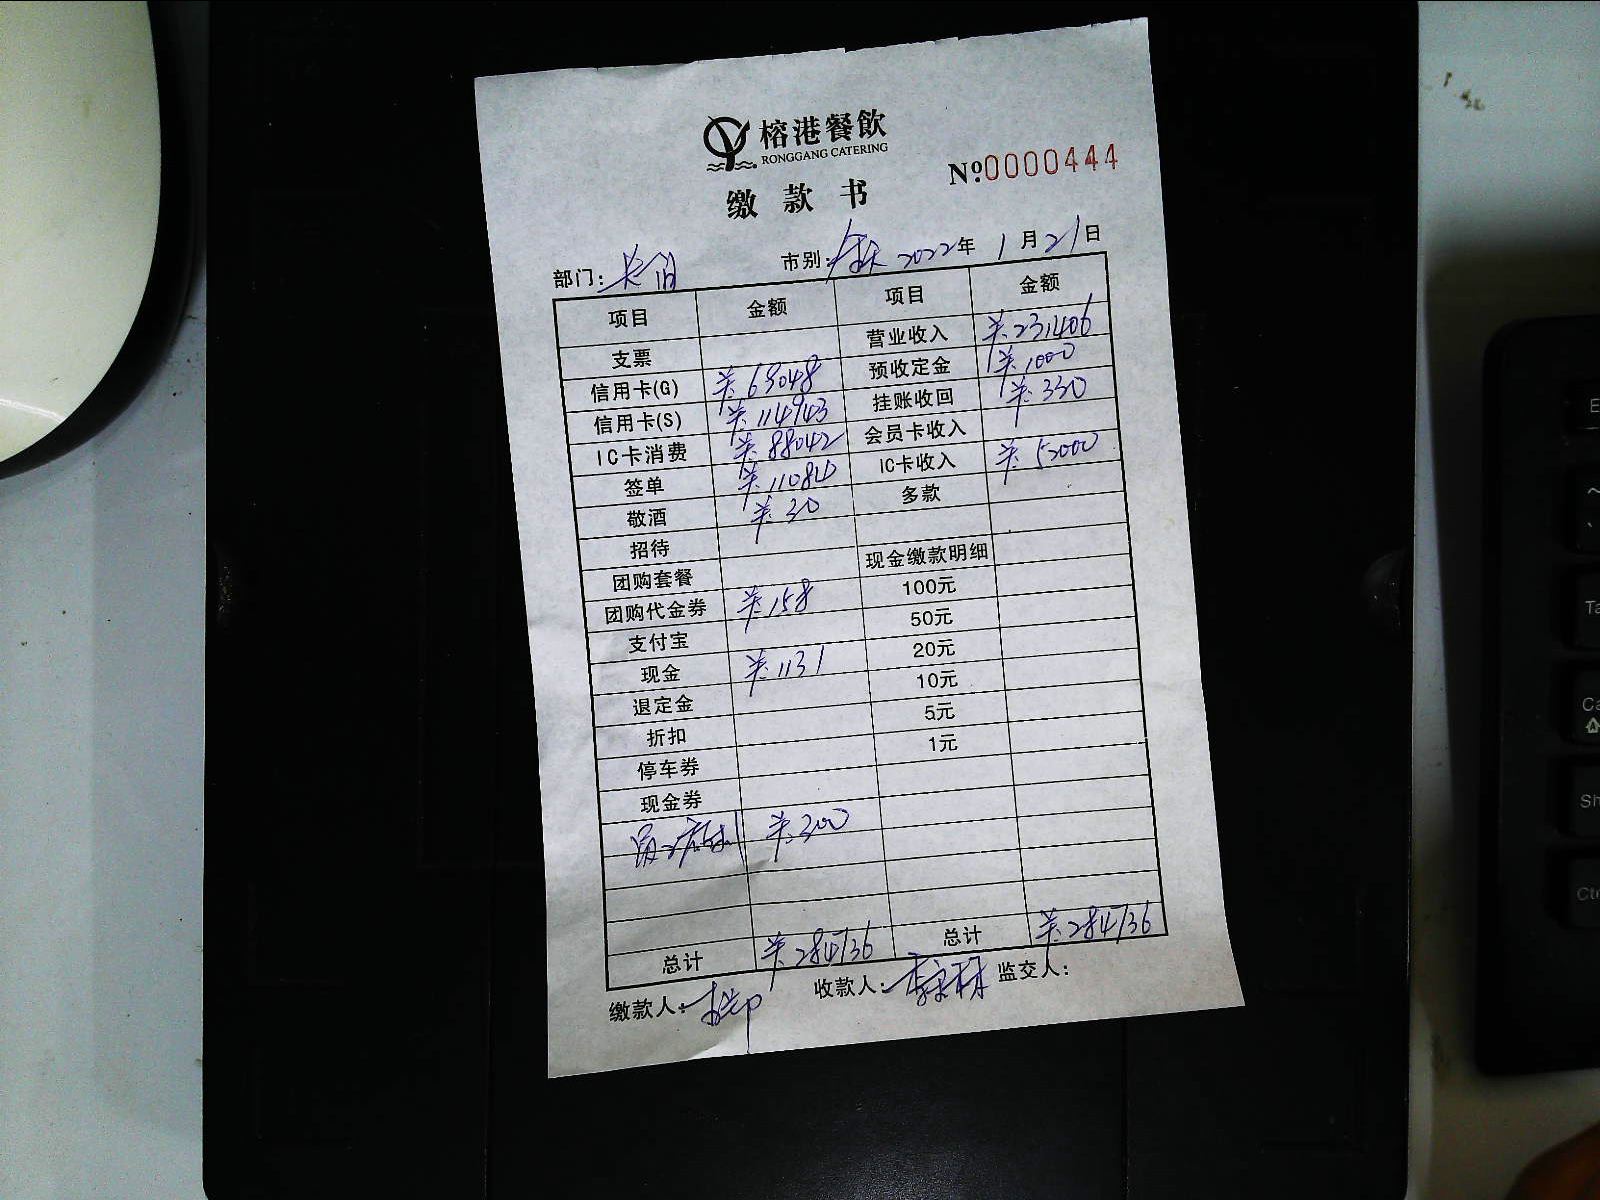 榕港餐飲
RONGGANG CATERING
缴款书
№0000444
部门: 市别:全天 2022年1月21日
项目 金额 项目 金额
支票 营业收入 ¥231406
信用卡(G) ¥69048 预收定金 ¥1000
信用卡(S) ¥114943 挂账收回 ¥330
IC卡消费 ¥88042 会员卡收入
签单 ¥11084 IC卡收入 ¥52000
敬酒 ¥30 多款
招待
团购套餐 现金缴款明细
团购代金券 ¥158 100元
支付宝 50元
现金 ¥1131 20元
退定金 10元
折扣 5元
停车券 1元
现金券
¥300
总计 ¥284736 总计 ¥284736
缴款人: 收款人: 监交人: